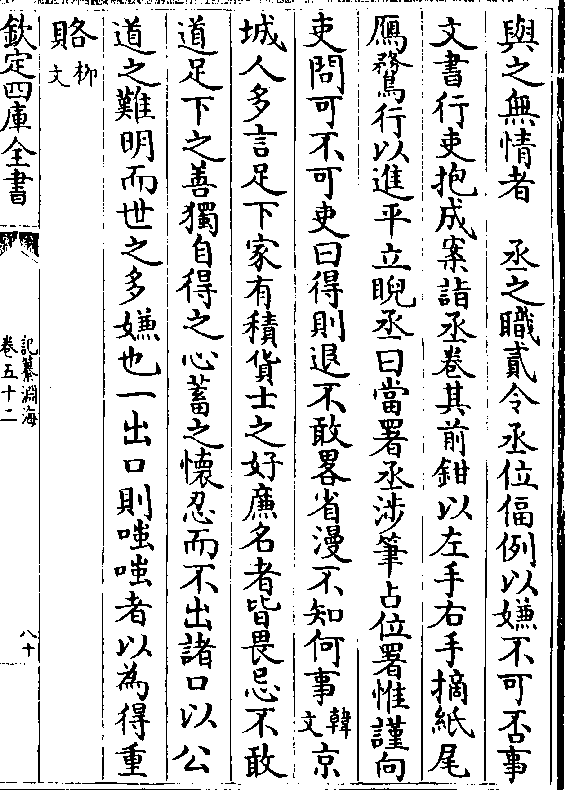 與之無情者　丞之職貳令丞位偪例以嫌不可否事
文書行吏抱成案詣丞卷其前鉗以左手右手摘紙尾
鴈鶩行以進平立睨丞曰當署丞涉筆占位署惟謹向
吏問可不可吏曰得則退不敢畧省漫不知何事韓文京
城人多言足下家有積貨士之好廉名者皆畏忌不敢
道足下之善獨自得之心蓄之懷忍而不出諸口以公
道之難明而世之多嫌也一出口則嗤嗤者以為得重
賂柳文
欽定四庫全書
記纂淵海
卷五十二
八十